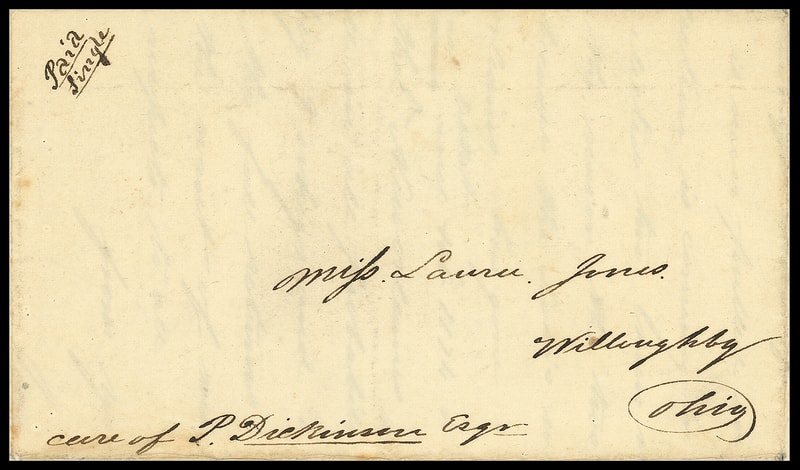 Paid
Single
Miss. Laura. Jones.
Willoughby
Ohio
care of P. Dickinson Esqr